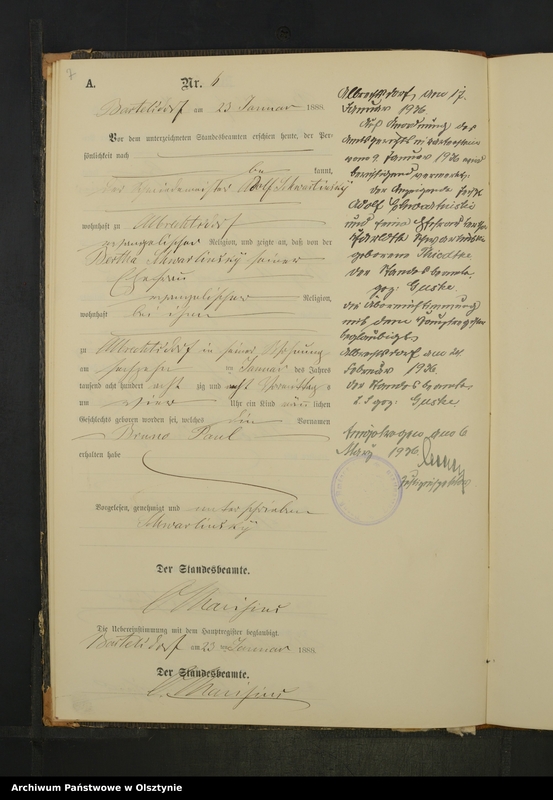 7
A.
Nr. 6
Barteldsdorf am 23 Januar 1888.
Vor dem unterzeichneten Standesbeamten erschien heute, der Per-
sönlichkeit nach
be kannt,
der Adolf Schwarlinsky
wohnhaft zu Albrechtsdorf
evangelischer Religion, und zeigte an, daß von der
Bertha Schwarlinsky seiner
Ehefrau
evangelischer Religion,
wohnhaft bei ihm
zu Albrechtsdorf in seiner Wohnung
am ten Januar des Jahres
tausend acht hundert acht zig und acht Vormittag s
um vier Uhr ein Kind männ lichen
Geschlechts geboren worden sei, welches die Vornamen
Bruno Paul
erhalten habe
Vorgelesen, genehmigt und unterschrieben
Schwarlinsky
Der Standesbeamte.
Die Uebereinstimmung mit dem Hauptregister beglaubigt.
Barteldsdorf am 23 ten Januar 1888.
Der Standesbeamte.
Albrechtsdorf, am 17.
Januar 1936
Auf Anordnung des
Amtsgerichts in Wartenburg
vom 9. Januar 1936 wird
berichtigend vermerkt:
der Anzeigende heißt
Adolf
und seine Ehefrau
geborene
Der Standesbeamte
gez. Guske.
die Übereinstimmung
mit dem Hauptregister
beglaubigt
Albrechtsdorf am 24
Februar 1936.
Der Standesbeamte
gez. Guske
Eingetragen, am 6
März 1936.
Archiwum Państwowe w Olsztynie